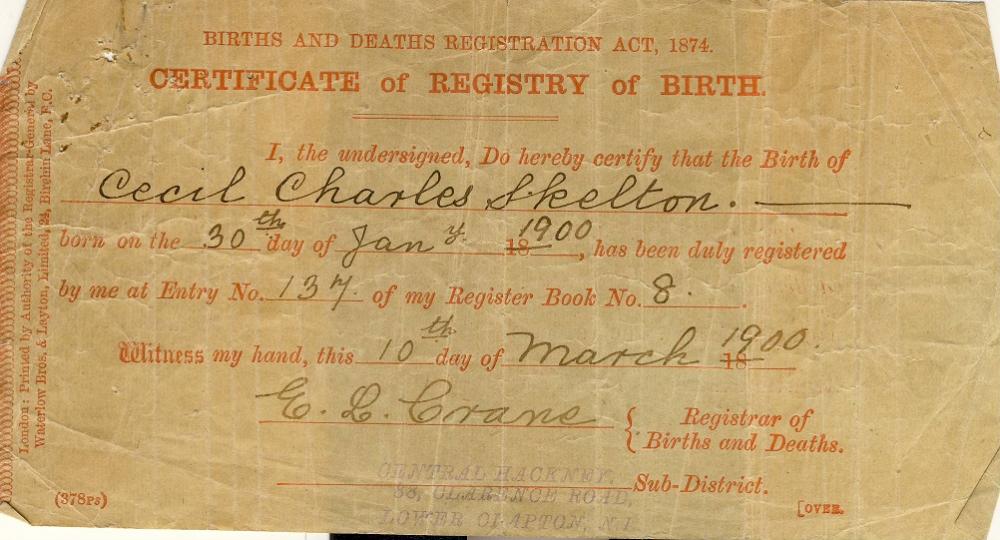 BIRTHS AND DEATHS REGISTRATION ACT, 1874.
CERTIFICATE of REGISTRY of BIRTH.
I, the undersigned, Do hereby certify that the Birth of
Cecil Charles Skelton.
born on the 30th day of Jany. 18 1900, has been duly registered
by me at Entry No. 137. of my Register Book No. 8.
Witness my hand, this 10th day of March 18 1900.
E. L. Crane { Registrar of
Births and Deaths.
CENTRAL HACKNEY,
Sub-District.
88, CLARENCE ROAD,
LOWER CLAPTON, N.E.
(378PS)
[OVER.
London: Printed by Authority of the Registrar-General by
Waterlow Bros. & Layton, Limited, 24, Birchin Lane, E.C.